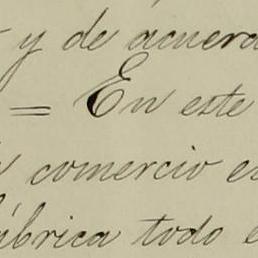 y de acuerd
= En este
comercio e
fábrica todo e